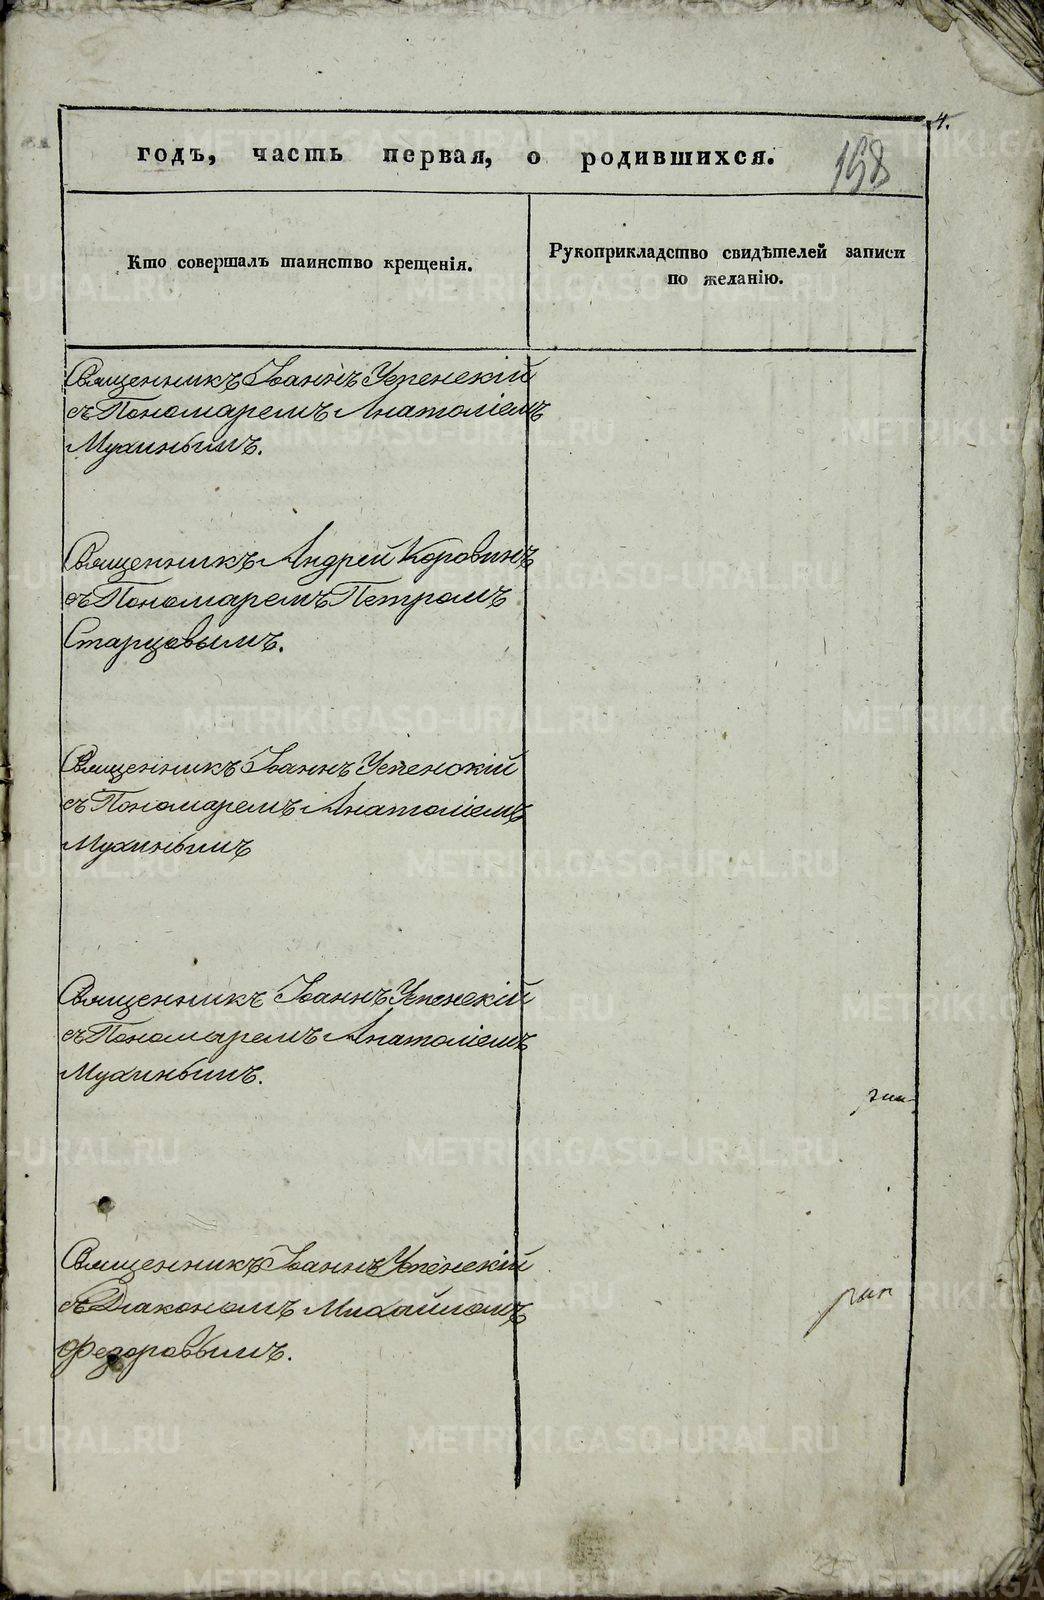 4.
годъ, часть первая, о родившихся.
158
Кто совершалъ таинство крещенія.
Рукоприкладство свидѣтелей записи
по желанію.
Священникъ Іоаннъ Успенскій
съ Пономаремъ Анатоліемъ
Мухинымъ.
Священникъ Андрей Коровинъ
съ Пономаремъ Петромъ
Старцовымъ.
Священникъ Іоаннъ Успенскій
съ Пономаремъ Анатоліемъ
Мухинымъ
Священникъ Іоаннъ Успенскій
съ Пономаремъ Анатоліемъ
Мухинымъ.
Священникъ Іоаннъ Успенскій
съ Діакономъ Михаиломъ
Федоровымъ.
METRIKI.GASO-URAL.RU